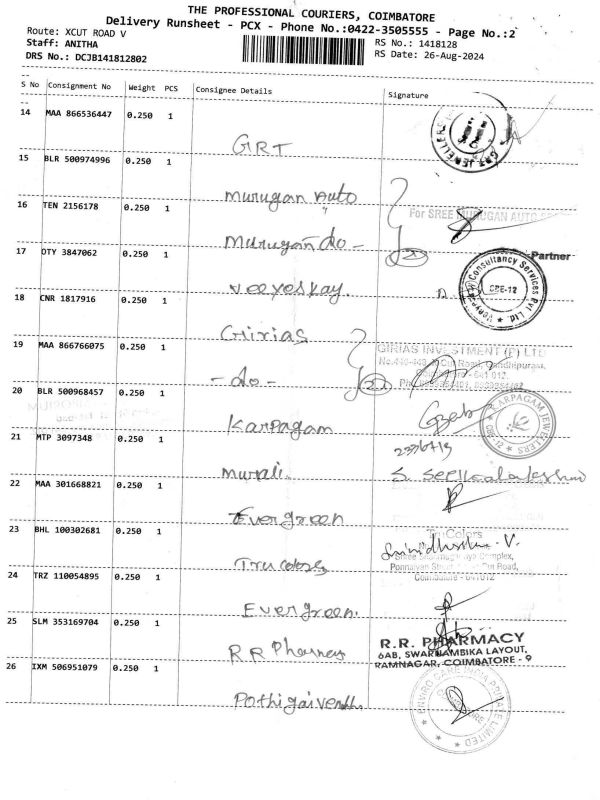 THE PROFESSIONAL COURIERS, COIMBATORE
Delivery Runsheet - PCX - Phone No.:0422-3505555 - Page No.:2
Route: XCUT ROAD V
Staff: ANITHA
DRS No.: DCJB141812802
RS No.: 1418128
RS Date: 26-Aug-2024
S No Consignment No Weight PCS Consignee Details Signature
14 MAA 866536447 0.250 1 GRT
15 BLR 500974996 0.250 1 Murugan Auto
16 TEN 2156178 0.250 1 Murugan do -
For SREE MURUGAN AUTO
Partner
17 OTY 3847062 0.250 1 Veeyeskay.
Consultancy Services Pvt. Ltd.
CBE-12
18 CNR 1817916 0.250 1 Girias
19 MAA 866766075 0.250 1 - do -
GIRIAS INVESTMENT (P) LTD
20 BLR 500968457 0.250 1 Karpagam
KARPAGAM JEWELLERS
21 MTP 3097348 0.250 1 Murali.
22 MAA 301668821 0.250 1 Evergreen
23 BHL 100302681 0.250 1 Trucolors
TruColors
Complex,
Coimbatore - 641012
24 TRZ 110054895 0.250 1 Evergreen.
25 SLM 353169704 0.250 1 R R Pharmacy
R.R. PHARMACY
6AB, SWARNAMBIKA LAYOUT,
RAMNAGAR, COIMBATORE - 9
26 IXM 506951079 0.250 1
ENVIRO CARE INDIA PRIVATE LIMITED